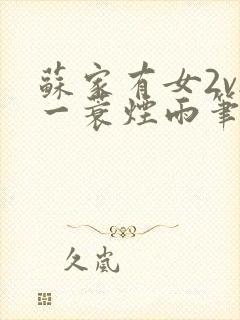 蘇家有女2v
一蓑煙雨筆
久嵐